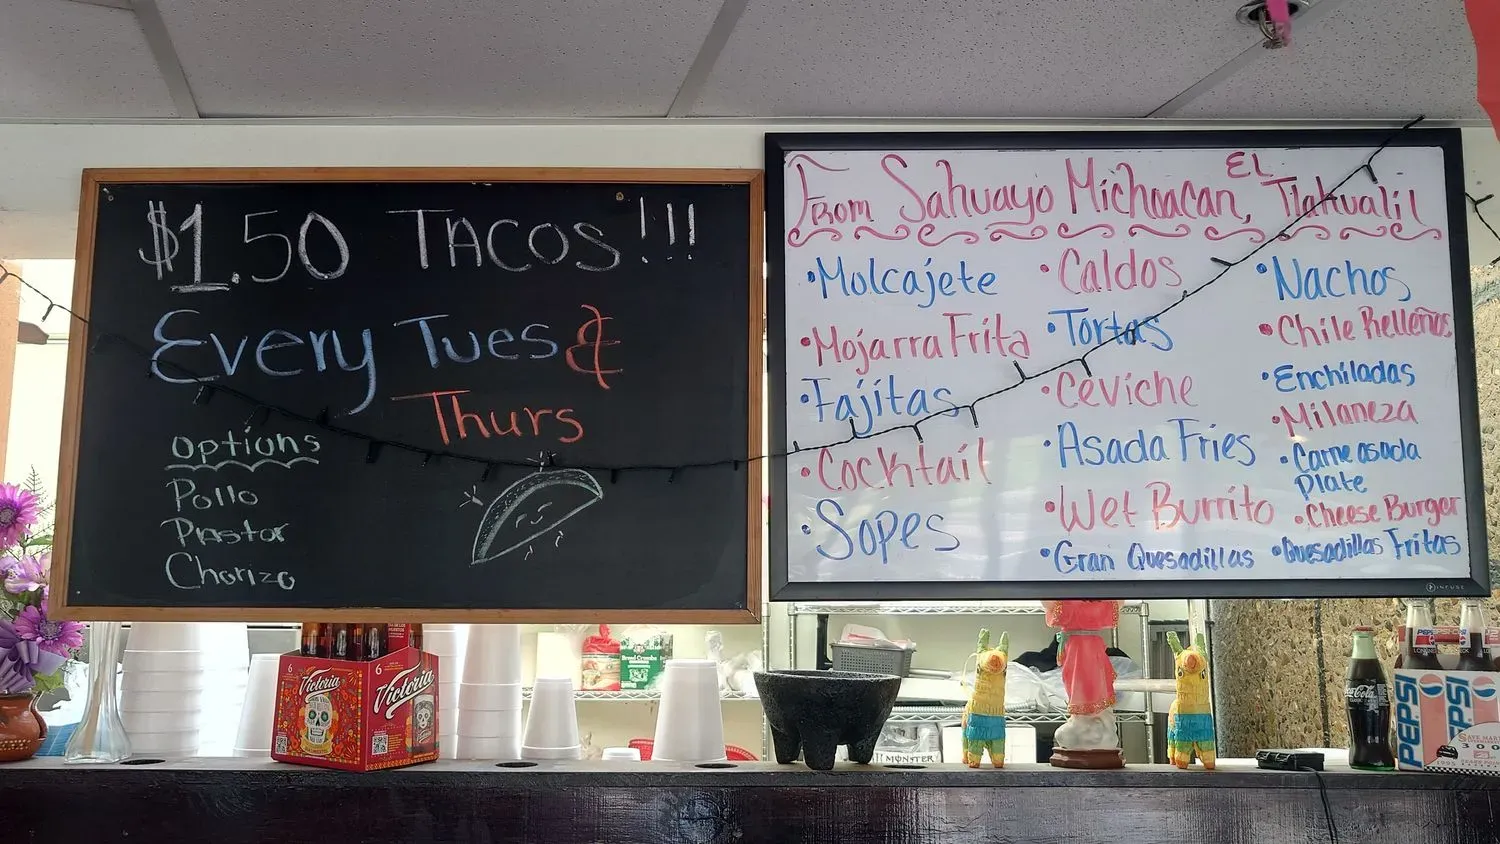 $1.50 TACOS!!!
Every Tues &
Thurs
options
Pollo
Pastor
Chorizo
From Sahuayo Michoacan, EL Tlahualil
•Molcajete
•Mojarra Frita
•Fajitas
•Cocktail
•Sopes
•Caldos
•Tortas
•Ceviche
•Asada Fries
•Wet Burrito
•Gran Quesadillas
•Nachos
•Chile Relleños
•Enchiladas
•Milaneza
•Carne asada
Plate
•Cheese Burger
•Quesadillas Fritas
INFUSE
6
Victoria
6
Victoria
Bread Crumbs
MONSTER
Coca-Cola
PEPSI
PEPSI
PEPSI
1995
300